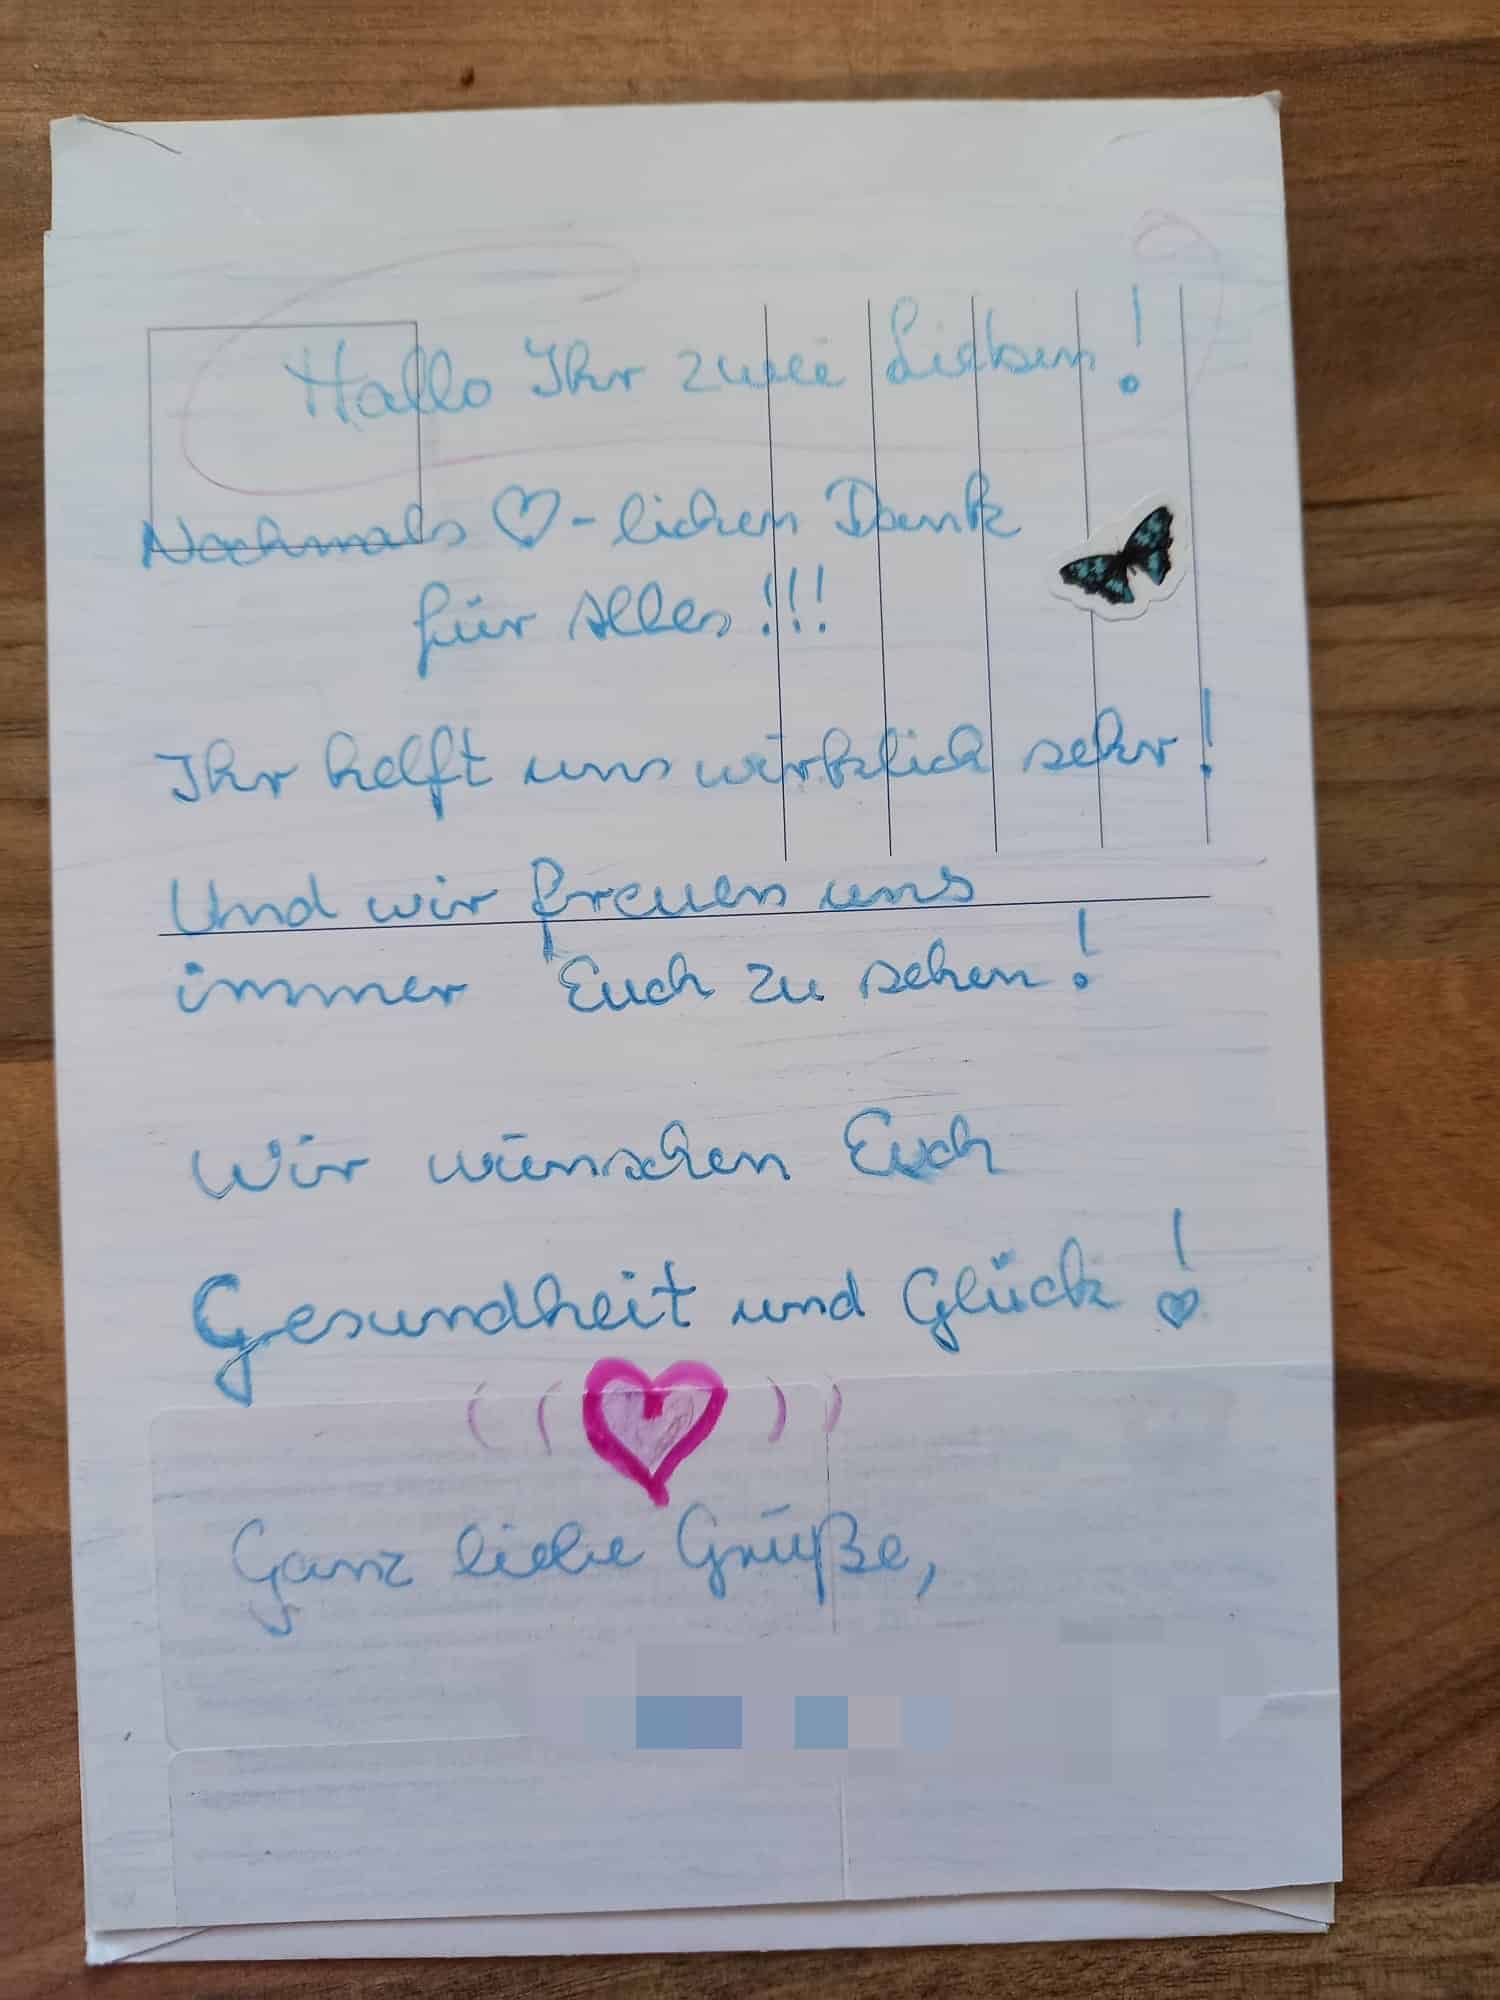 Hallo Ihr zwei Lieben!
Nochmals ♡-lichen Dank
für alles!!!
Ihr helft uns wirklich sehr!
Und wir freuen uns
immer Euch zu sehen!
Wir wünschen Euch
Gesundheit und Glück!
Ganz liebe Grüße,